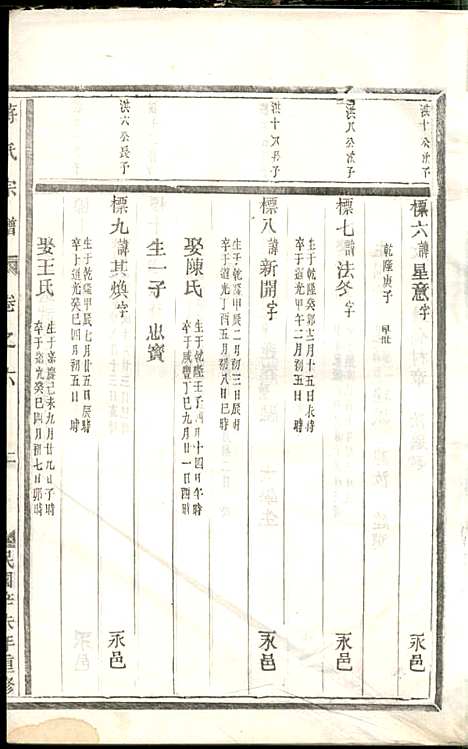 洪十公次子
標六諱星意字
乾隆庚子 早世
洪八公次子
標七諱法冬字
生于乾隆癸卯三月十五日辰時
卒于道光甲午二月初五日 時
永邑
洪十六公長子
標八諱新開字
生于乾隆甲辰二月初三日辰時
卒于道光丁酉五月初八日巳時
永邑
娶陳氏
生于乾隆壬子四月十四日午時
卒于咸豐丁巳九月廿一日酉時
生一子 忠寶
洪六公長子
標九諱其煥字
生于乾隆甲辰七月廿五日辰時
卒于道光癸巳四月初五日 時
永邑
娶王氏
生于嘉慶己未九月廿九日子時
卒于道光癸巳四月初七日卯時
蔣氏宗譜 卷之六
民國辛未年重修